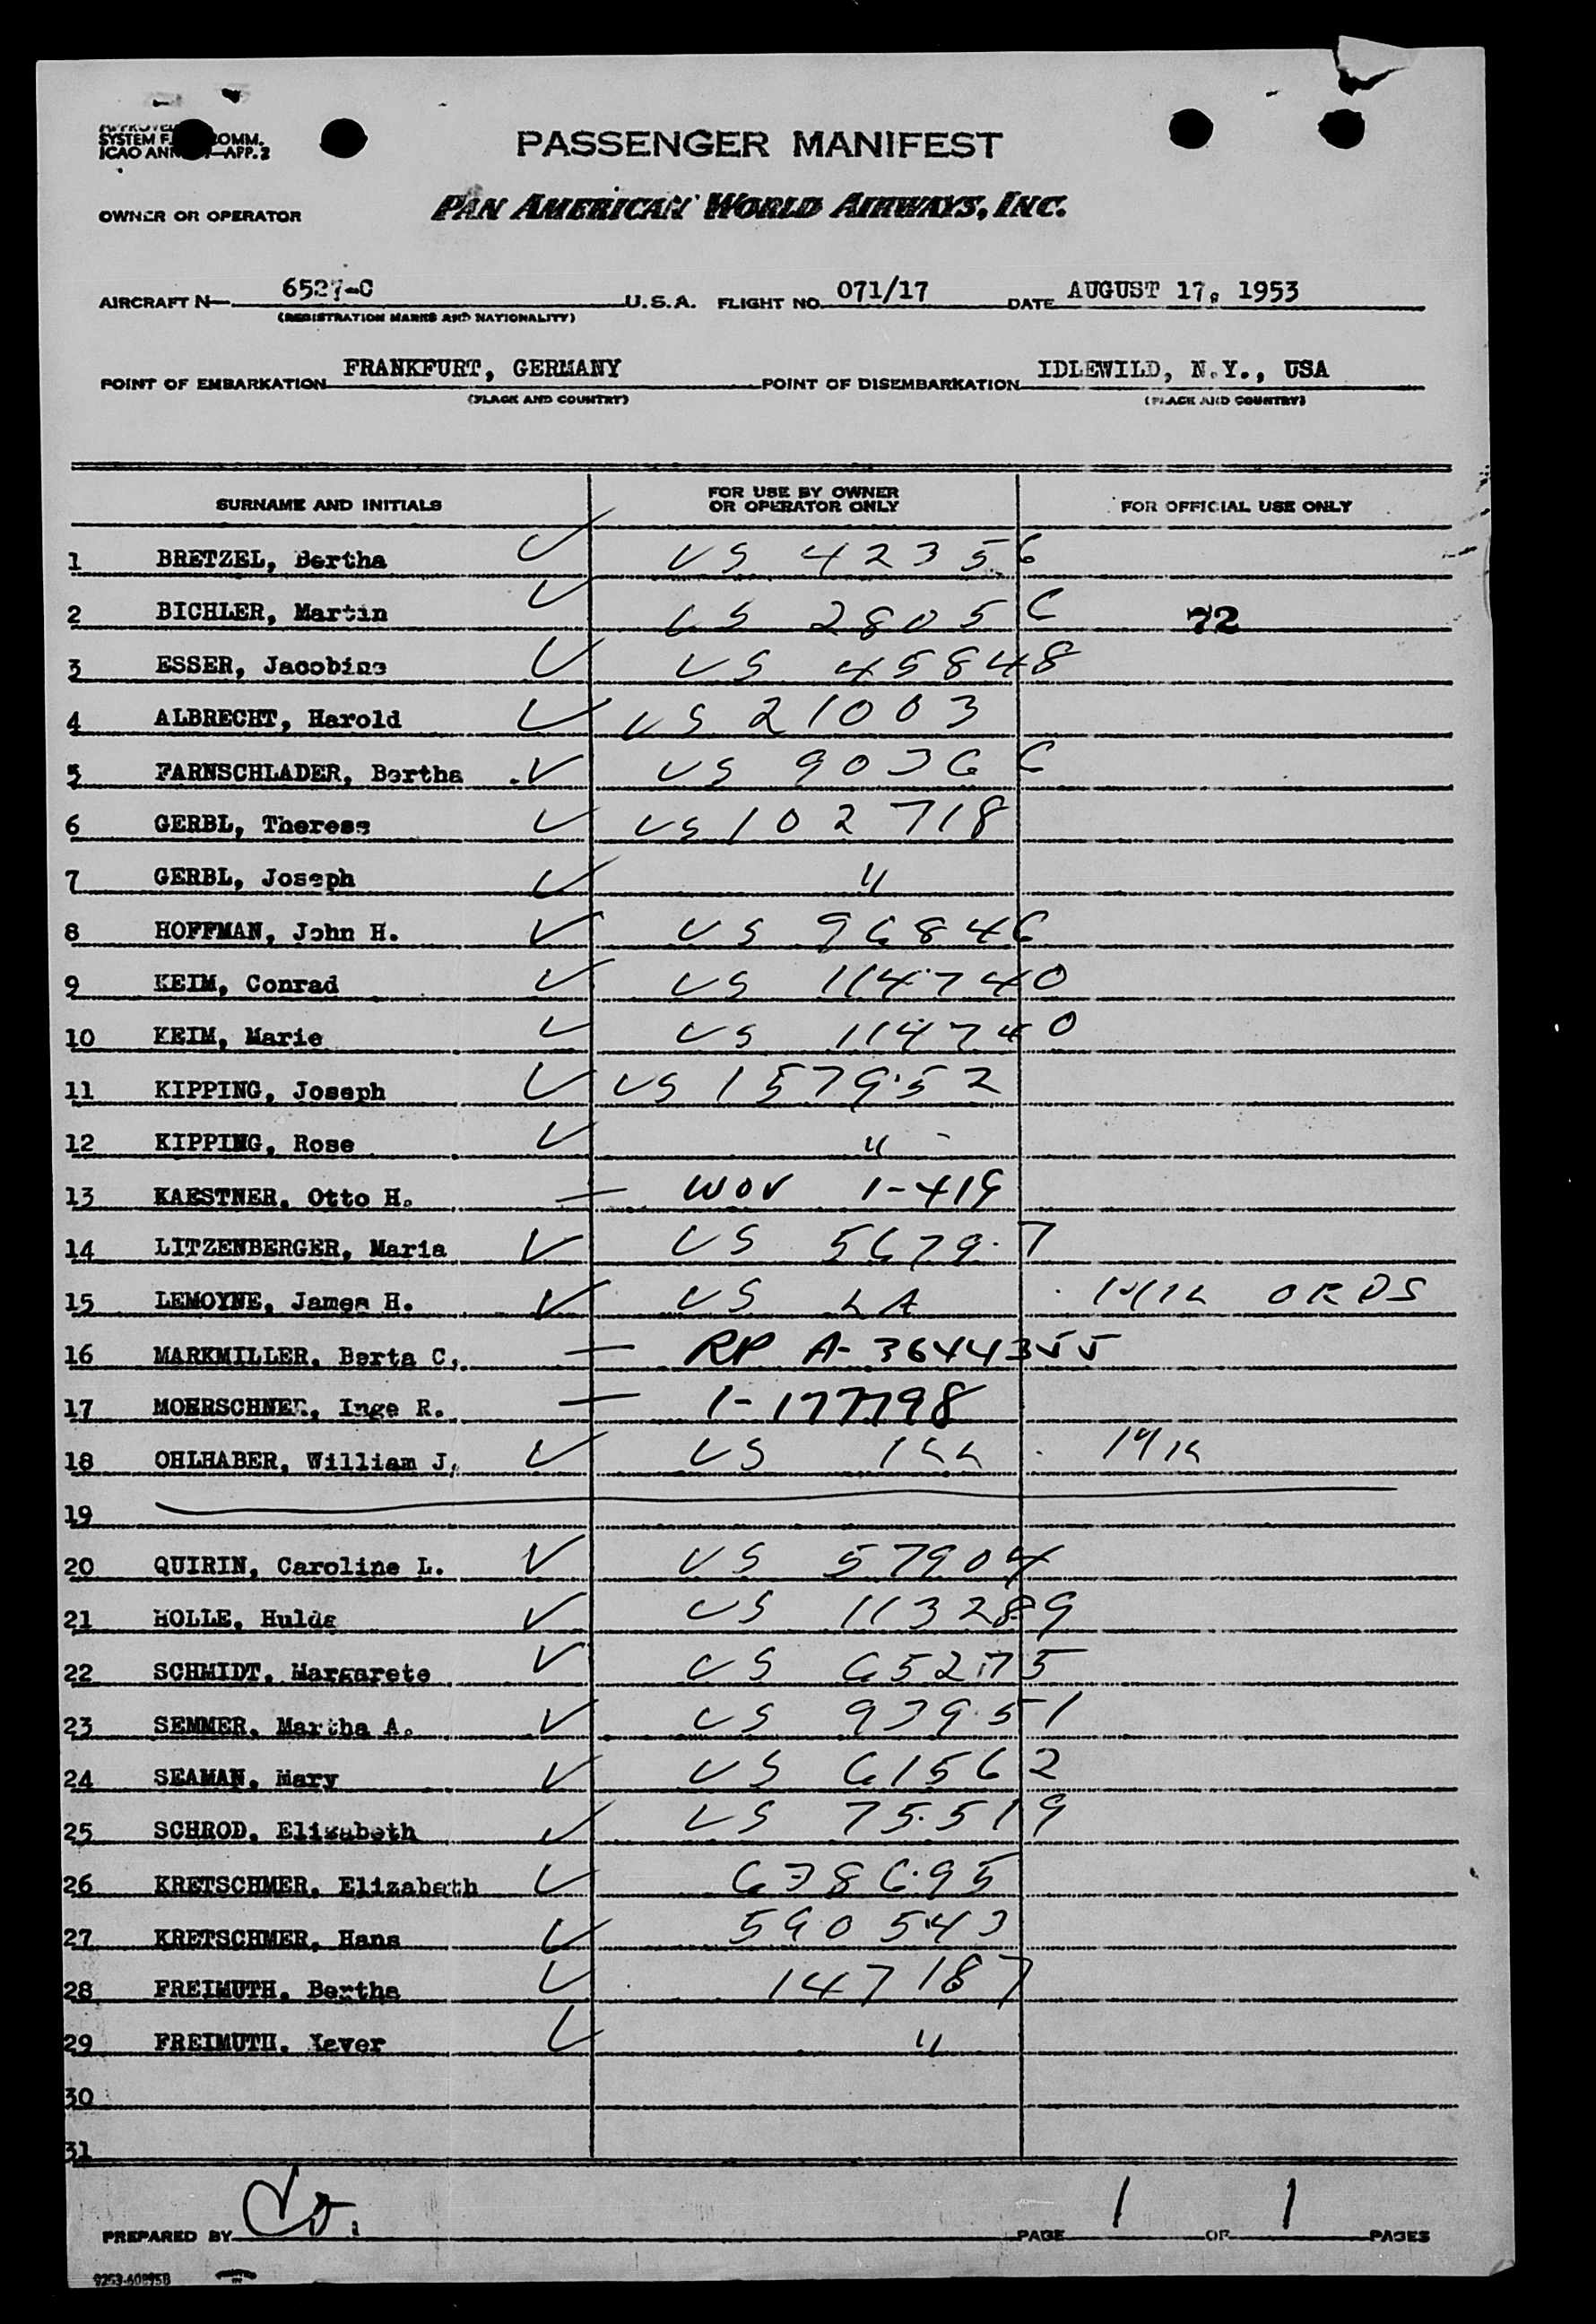 SYSTEM F COMM.
ICAO ANN APP. 2
PASSENGER MANIFEST
OWNER OR OPERATOR PAN AMERICAN WORLD AIRWAYS, INC.
AIRCRAFT N— 6527-C U.S.A. FLIGHT NO. 071/17 DATE AUGUST 17, 1953
(REGISTRATION MARKS AND NATIONALITY)
POINT OF EMBARKATION FRANKFURT, GERMANY POINT OF DISEMBARKATION IDLEWILD, N.Y., USA
(PLACE AND COUNTRY) (PLACE AND COUNTRY)
SURNAME AND INITIALS FOR USE BY OWNER OR OPERATOR ONLY FOR OFFICIAL USE ONLY
1 BRETZEL, Bertha ✓ US 42356
2 BICHLER, Martin ✓ US 28056 72
3 ESSER, Jacobine ✓ US 45848
4 ALBRECHT, Harold ✓ US 21003
5 FARNSCHLADER, Bertha ✓ US 90366
6 GERBL, Therese ✓ US 102718
7 GERBL, Joseph ✓ "
8 HOFFMAN, John H. ✓ US 96846
9 KEIM, Conrad ✓ US 114740
10 KEIM, Marie ✓ US 114740
11 KIPPING, Joseph ✓ US 157952
12 KIPPING, Rose ✓ "
13 KAESTNER, Otto H. — WOV 1-419
14 LITZENBERGER, Maria ✓ US 56797
15 LEMOYNE, James H. ✓ US ORDS
16 MARKMILLER, Berta C. — RP A-3644355
17 MOERSCHNER, Inge R. — 1-177798
18 OHLHABER, William J. ✓ US
19
20 QUIRIN, Caroline L. ✓ US 57904
21 HOLLE, Hulda ✓ US 113289
22 SCHMIDT, Margarete ✓ US 65275
23 SEMMER, Martha A. ✓ US 93951
24 SEAMAN, Mary ✓ US 61562
25 SCHROD, Elizabeth ✓ US 75519
26 KRETSCHMER, Elizabeth ✓ 638695
27 KRETSCHMER, Hans ✓ 590543
28 FREIMUTH, Bertha ✓ 147187
29 FREIMUTH, Xaver ✓ "
30
31
PREPARED BY PAGE 1 OF 1 PAGES